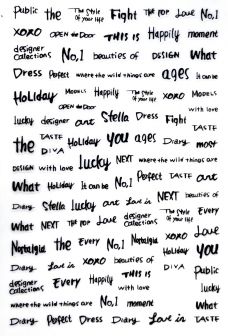 Public the The Style of your life Fight THE TOP Love No,1
XOXO OPEN the Door THIS IS Happily moment
designer Calections No,1 beauties of DESIGN What
Dress Perfect where the wild things are ages It can be
HoLiday MODELS Happily The Style of your life XOXO MODELS
OPEN the Door with love
lucky designer ant Stella Dress Fight
TASTE
the TASTE Holiday you ages Diary most
DIVA
DESIGN with love lucky NEXT where the wild things are
What HoLiday It can be No,1 Perfect TASTE ant
Diary Stella lucky ant Love is NEXT beauties of
What NEXT THE TOP Love designer Calections The Style of your life Every
Nostalgia the Every No,1 Nostalgia XOXO HoLiday Love
you
Diary Love is XOXO beauties of DIVA Public
designer Calections Every Happily THIS IS with love lucky
where the wild things are No,1 moment What
Diary Perfect Dress Diary Love is TASTE